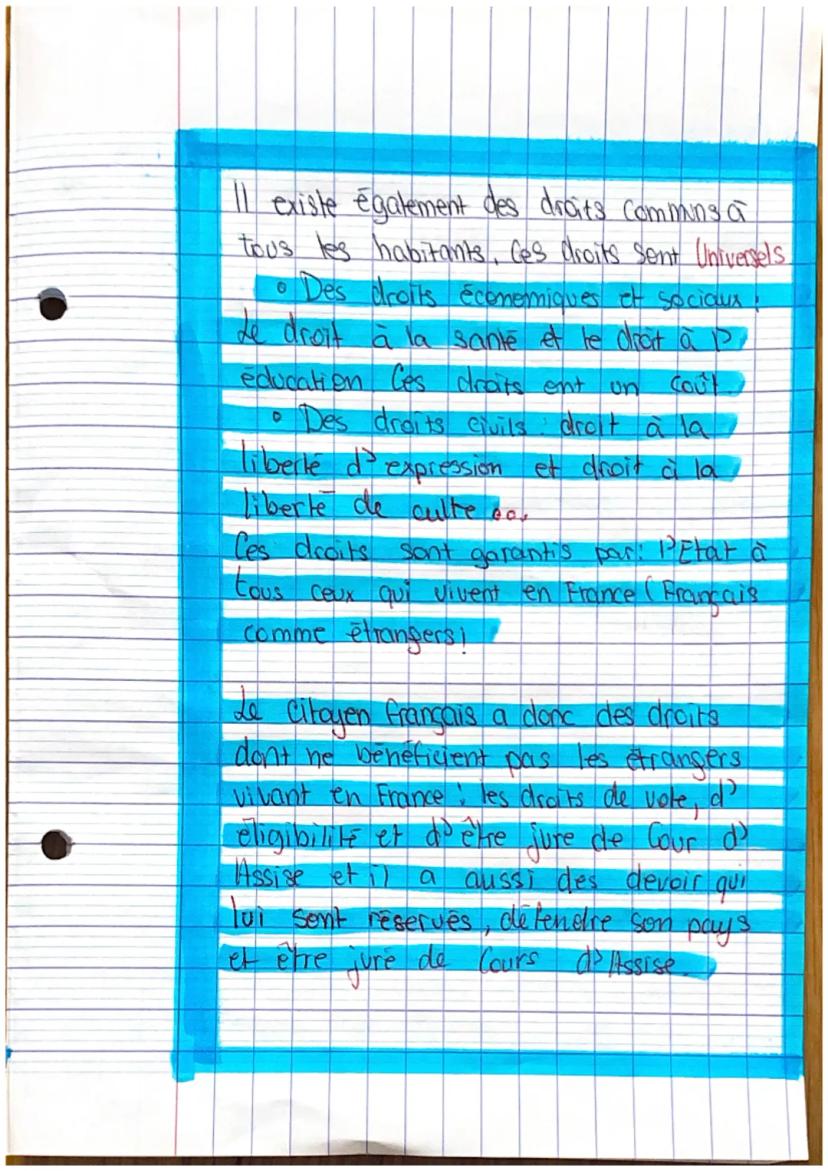 Il existe également des droits communs à
tous les habitants, Ces droits sont Universels
• Des droits économiques et sociaux :
Le droit à la santé et le droit à l'
éducation Ces droits ont un coût
• Des droits civils : droit à la
liberté d'expression et droit à la
liberté de culte ...
Ces droits sont garantis par : l'Etat à
tous ceux qui vivent en France (Français
comme étrangers)
Le Citoyen français a donc des droits
dont ne bénéficient pas les étrangers
vivant en France : les droits de vote, d'
éligibilité et d'être jure de Cour d'
Assise et il a aussi des devoir qui
lui sont réservés, défendre son pays
et être juré de Cours d'Assise.